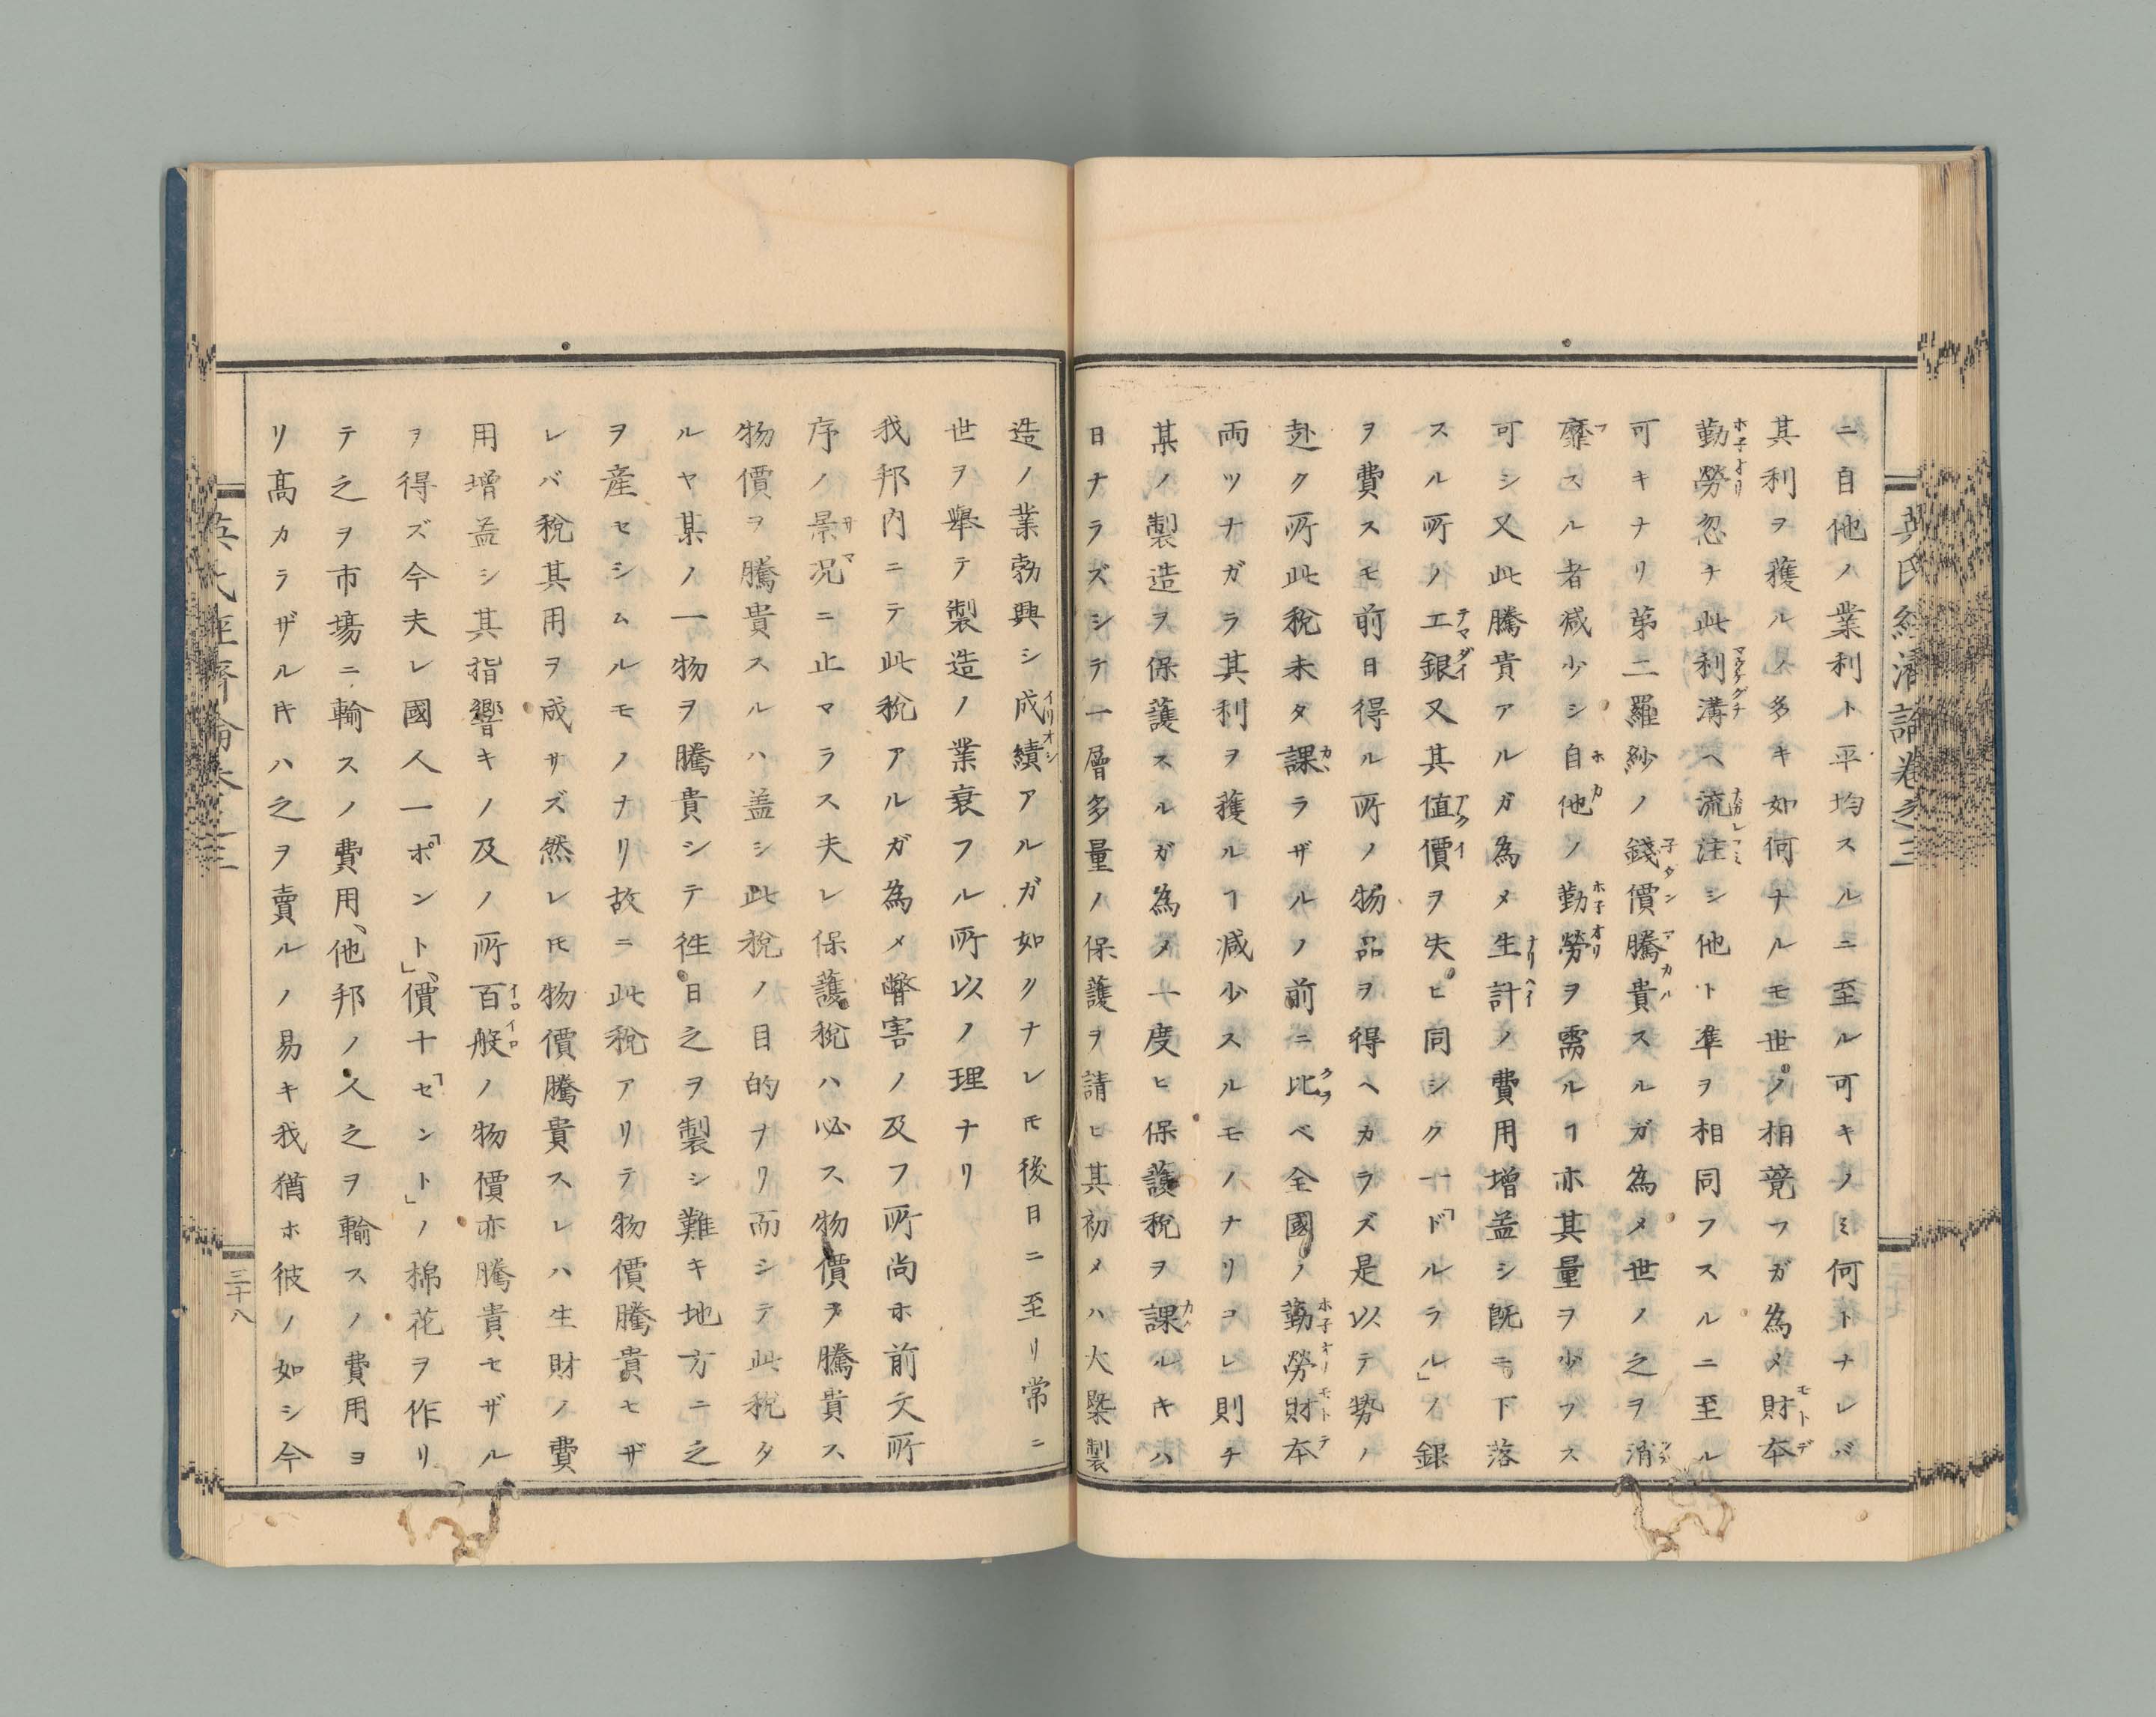 英氏經濟論卷之三
ニ自他ノ業利ト平均スルニ至ル可キノミ何トナレバ
其利ヲ獲ルノ多キ如何ナルモ世ノ相競フガ為メ財本
勤勞忽チ此利溝ヘ流注シ他ト準ヲ相同フスルニ至ル
可キナリ第二羅紗ノ錢價騰貴スルガ為メ世ノ之ヲ消
靡スル者减少シ自他ノ勤勞ヲ需ルヿ亦其量ヲ少フス
可シ又此騰貴アルガ為メ生計ノ費用增益シ既ニ下落
スル所ノ工銀又其值價ヲ失ヒ同シク一「ドルラル」ノ銀
ヲ費スモ前日得ル所ノ物品ヲ得ヘカラズ是以テ勢ノ
赴ク所此稅未タ課ラザルノ前ニ比ベ全國ノ勤勞財本
両ツナガラ其利ヲ獲ルヿ减少スルモノナリコレ則チ
某ノ製造ヲ保護スルガ為メ一度ヒ保護稅ヲ課ルキハ
日ナラズシテ一層多量ノ保護ヲ請ヒ其初メハ大槩製
造ノ業勃興シ成績アルガ如クナレ𪜈後日ニ至リ常ニ
世ヲ舉テ製造ノ業衰フル所以ノ理ナリ
我邦内ニテ此稅アルガ為メ弊害ノ及フ所尚ホ前文所
序ノ景况ニ止マラス夫レ保護稅ハ必ス物價ヲ騰貴ス
物價ヲ騰貴スルハ盖シ此稅ノ目的ナリ而シテ此稅タ
ルヤ某ノ一物ヲ騰貴シテ徃日之ヲ製シ難キ地方ニ之
ヲ產セシムルモノナリ故ニ此稅アリテ物價騰貴セザ
レバ稅其用ヲ成サズ然レ𪜈物價騰貴スレハ生財ノ費
用增益シ其指響キノ及ノ所百般ノ物價亦騰貴セザル
ヲ得ズ今夫レ國人一「ポント」、價十「セント」ノ棉花ヲ作リ
テ之ヲ市場ニ輸スノ費用、他邦ノ人之ヲ輸スノ費用ヨ
リ髙カラザルキハ之ヲ賣ルノ易キ我猶ホ彼ノ如シ今
三十八